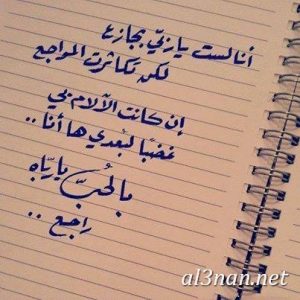 أنا لست يا ربّي بجازع
لكن تكاثرت المواجع
إن كانت الآلام بي
غضبًا لبُعدي ها أنا ..
بالحُبّ يا ربّاه
راجع ..
al3nan.net